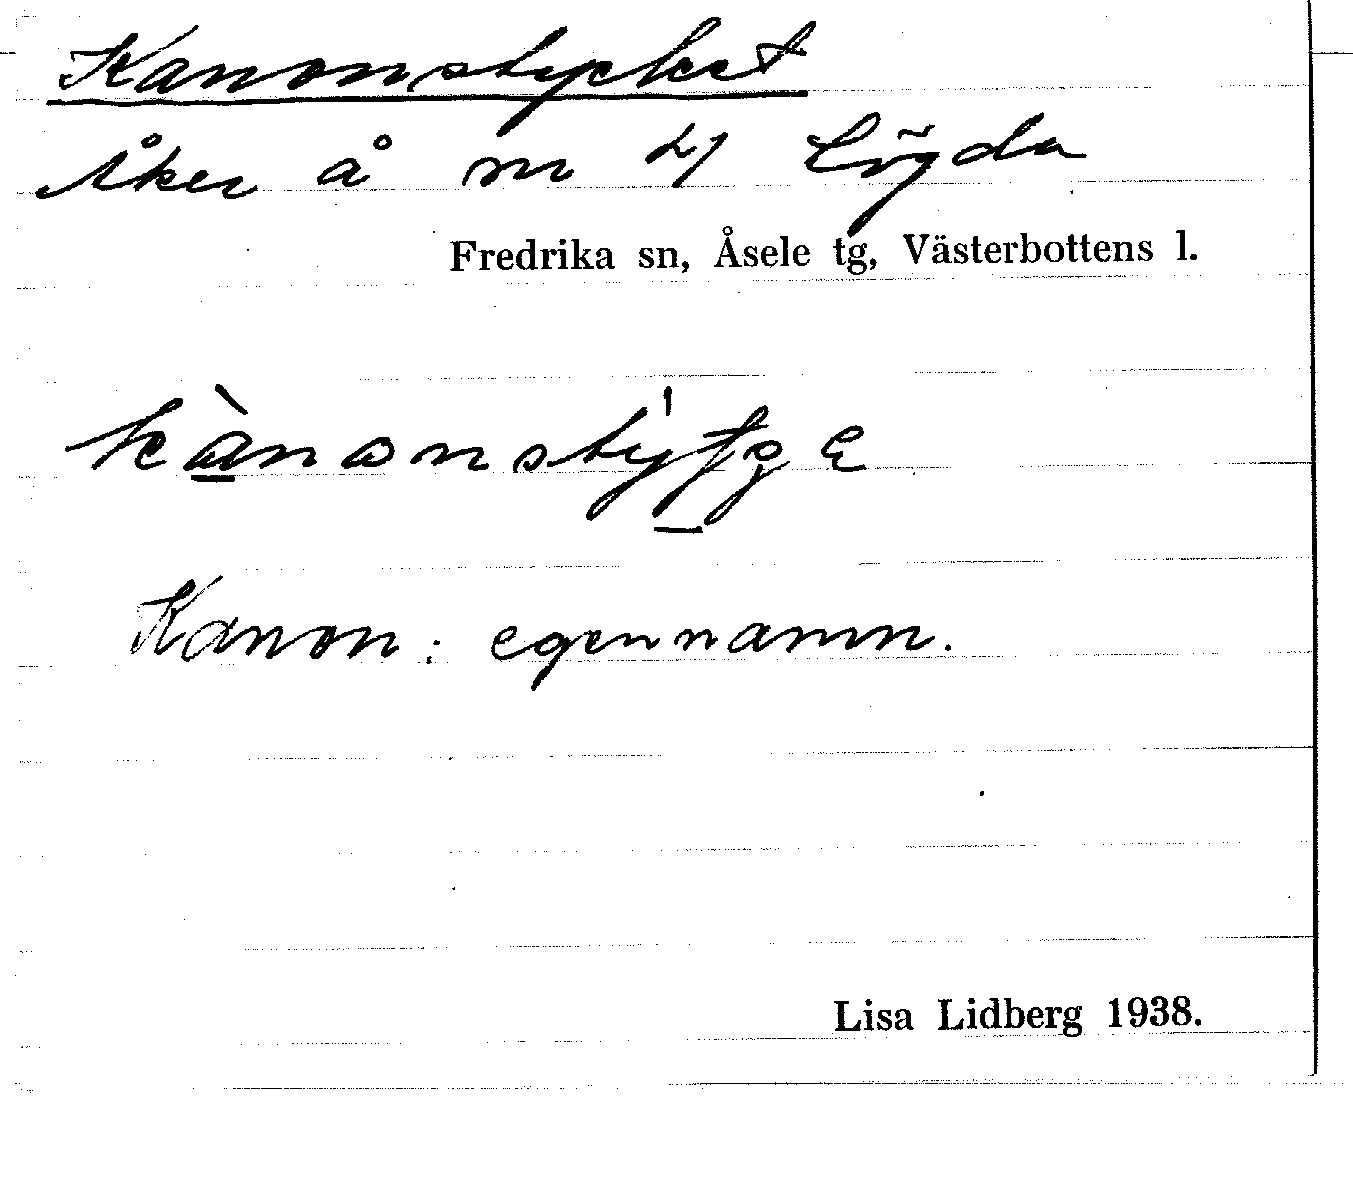 Kanonstycket
Åker å nr 4 Lögda
Fredrika sn, Åsele tg, Västerbottens l.
Kanon: egennamn.
Lisa Lidberg 1938.